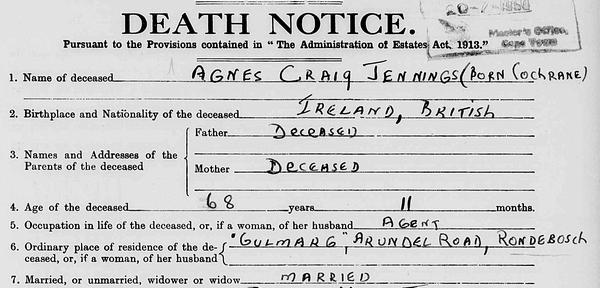 20-7-1950
DEATH NOTICE.
Master's Office,
Cape Town
Pursuant to the Provisions contained in “ The Administration of Estates Act, 1913.”
1. Name of deceased AGNES CRAIG JENNINGS (BORN COCHRANE)
2. Birthplace and Nationality of the deceased IRELAND, BRITISH
3. Names and Addresses of the Parents of the deceased
Father DECEASED
Mother DECEASED
4. Age of the deceased 68 years 11 months.
5. Occupation in life of the deceased, or, if a woman, of her husband AGENT
6. Ordinary place of residence of the de-
ceased, or, if a woman, of her husband "GULMARG", ARUNDEL ROAD, RONDEBOSCH
7. Married, or unmarried, widower or widow MARRIED